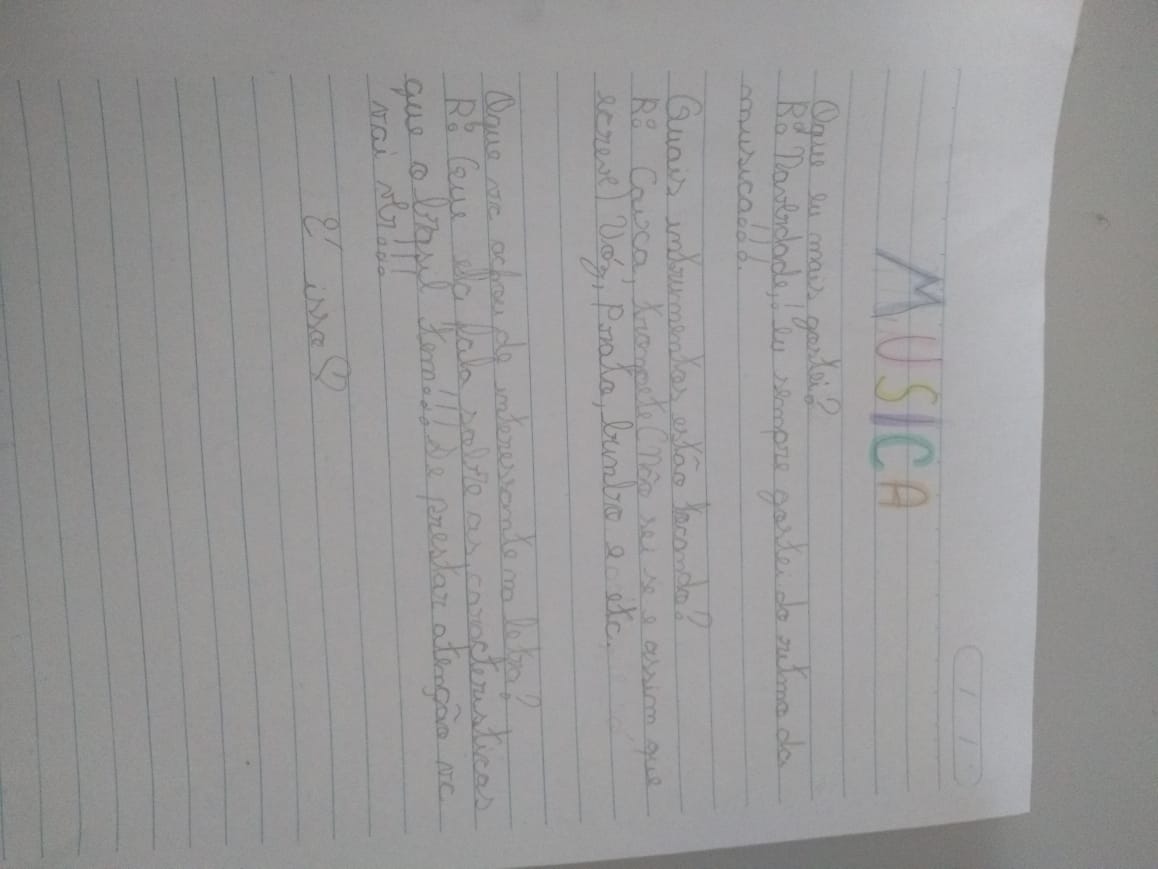 MUSICA
Oque eu mais gostei?
R: Naverdade, eu sempre gostei do ritmo da
musica!!!
Quais intrumentos estão tocando?
R: Caixa, trompete (Não sei se e assim que
screve) Vóz, Prato, bumbo e etc,
Oque vc achou de interessante na letra?
R: Que ela fala sobre as, caracteristicas
que o brasil tem!!! Se prestar atenção vc
vai vlr!!!
é isso♡